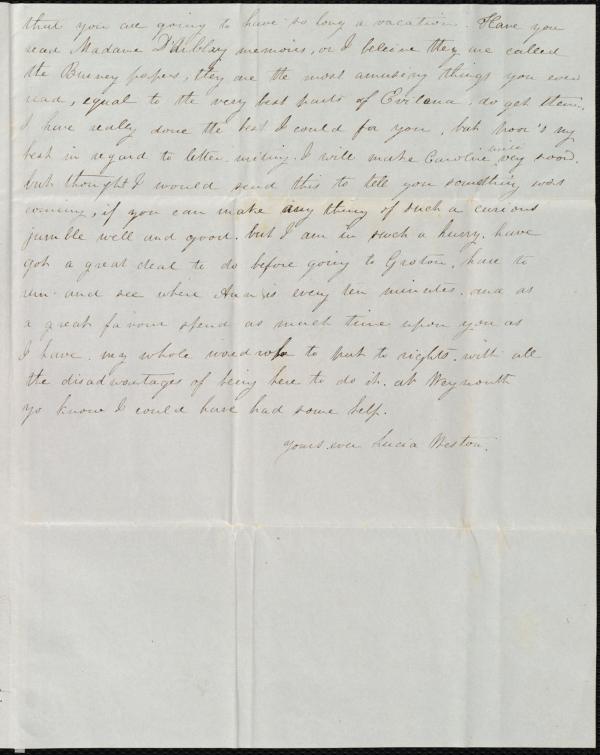 that you are going to have so long a vacation. Have you
read Madame D'Arblay memoirs, or I beleive they are called
the Burney papers, they are the most amusing things you ever
read, equal to the very best parts of Evilena, do get them.
I have really done the best I could for you, but poor's my
best in regard to letter writing. I will make Caroline write very soon.
but thought I would send this to tell you something was
coming, if you can make any thing of such a curious
jumble well and good. but I am in such a hurry. have
got a great deal to do before going to Groton, have to
run and see where Ann is every ten minutes. and as
a great favour spend as much time upon you as
I have. my whole wardrobe to put to rights. with all
the disadvantages of being here to do it. at Weymouth
yo know I could have had some help.
yours ever Lucia Weston.